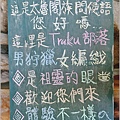 這是太魯閣族問候語
您好嗎
這裡是Truku部落
男狩獵女編織
是祖靈的眼
歡迎您們來
體驗不一樣の